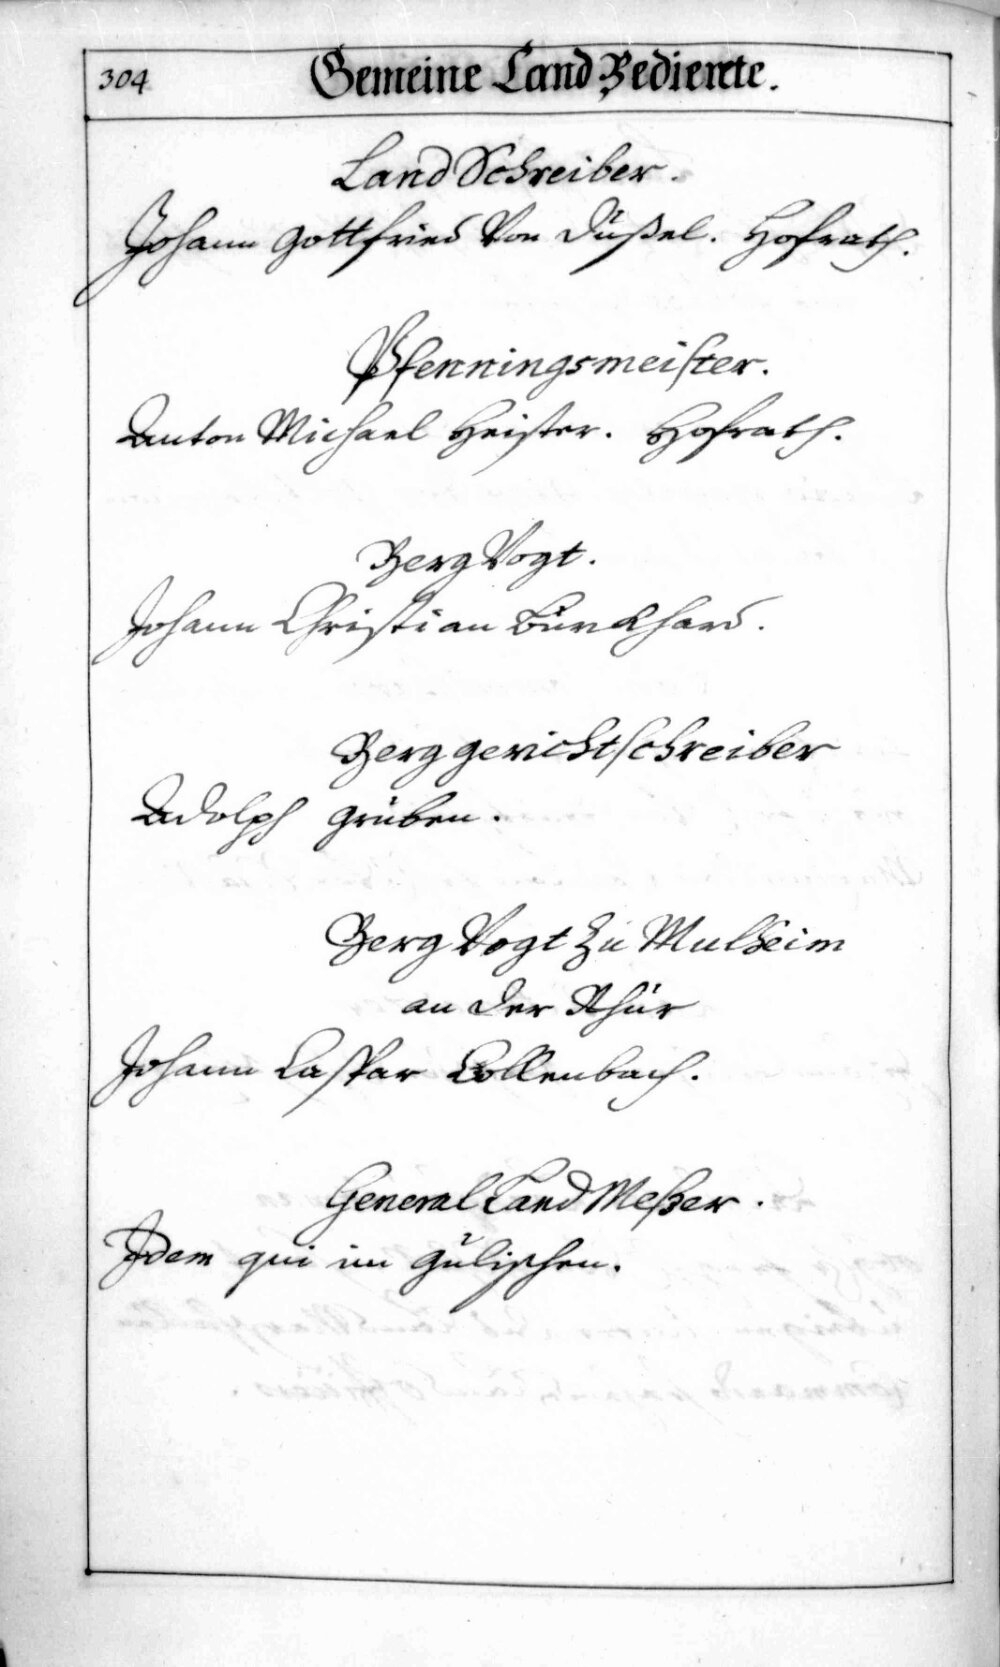 304
Gemeine Land Bediente.
Land Schreiber.
Johann Gottfried Von Düßel. Hofrath.
Pfenningsmeister.
Anton Michael Heister. Hofrath.
Berg Vogt.
Johann Christian Burckhard.
Berggerichtschreiber
Adolph Grüben.
Berg Vogt Zu Mulheim
an der Rhür
Johann Caspar Collenbach.
General Land Meßer.
Idem qui im Gülischen.